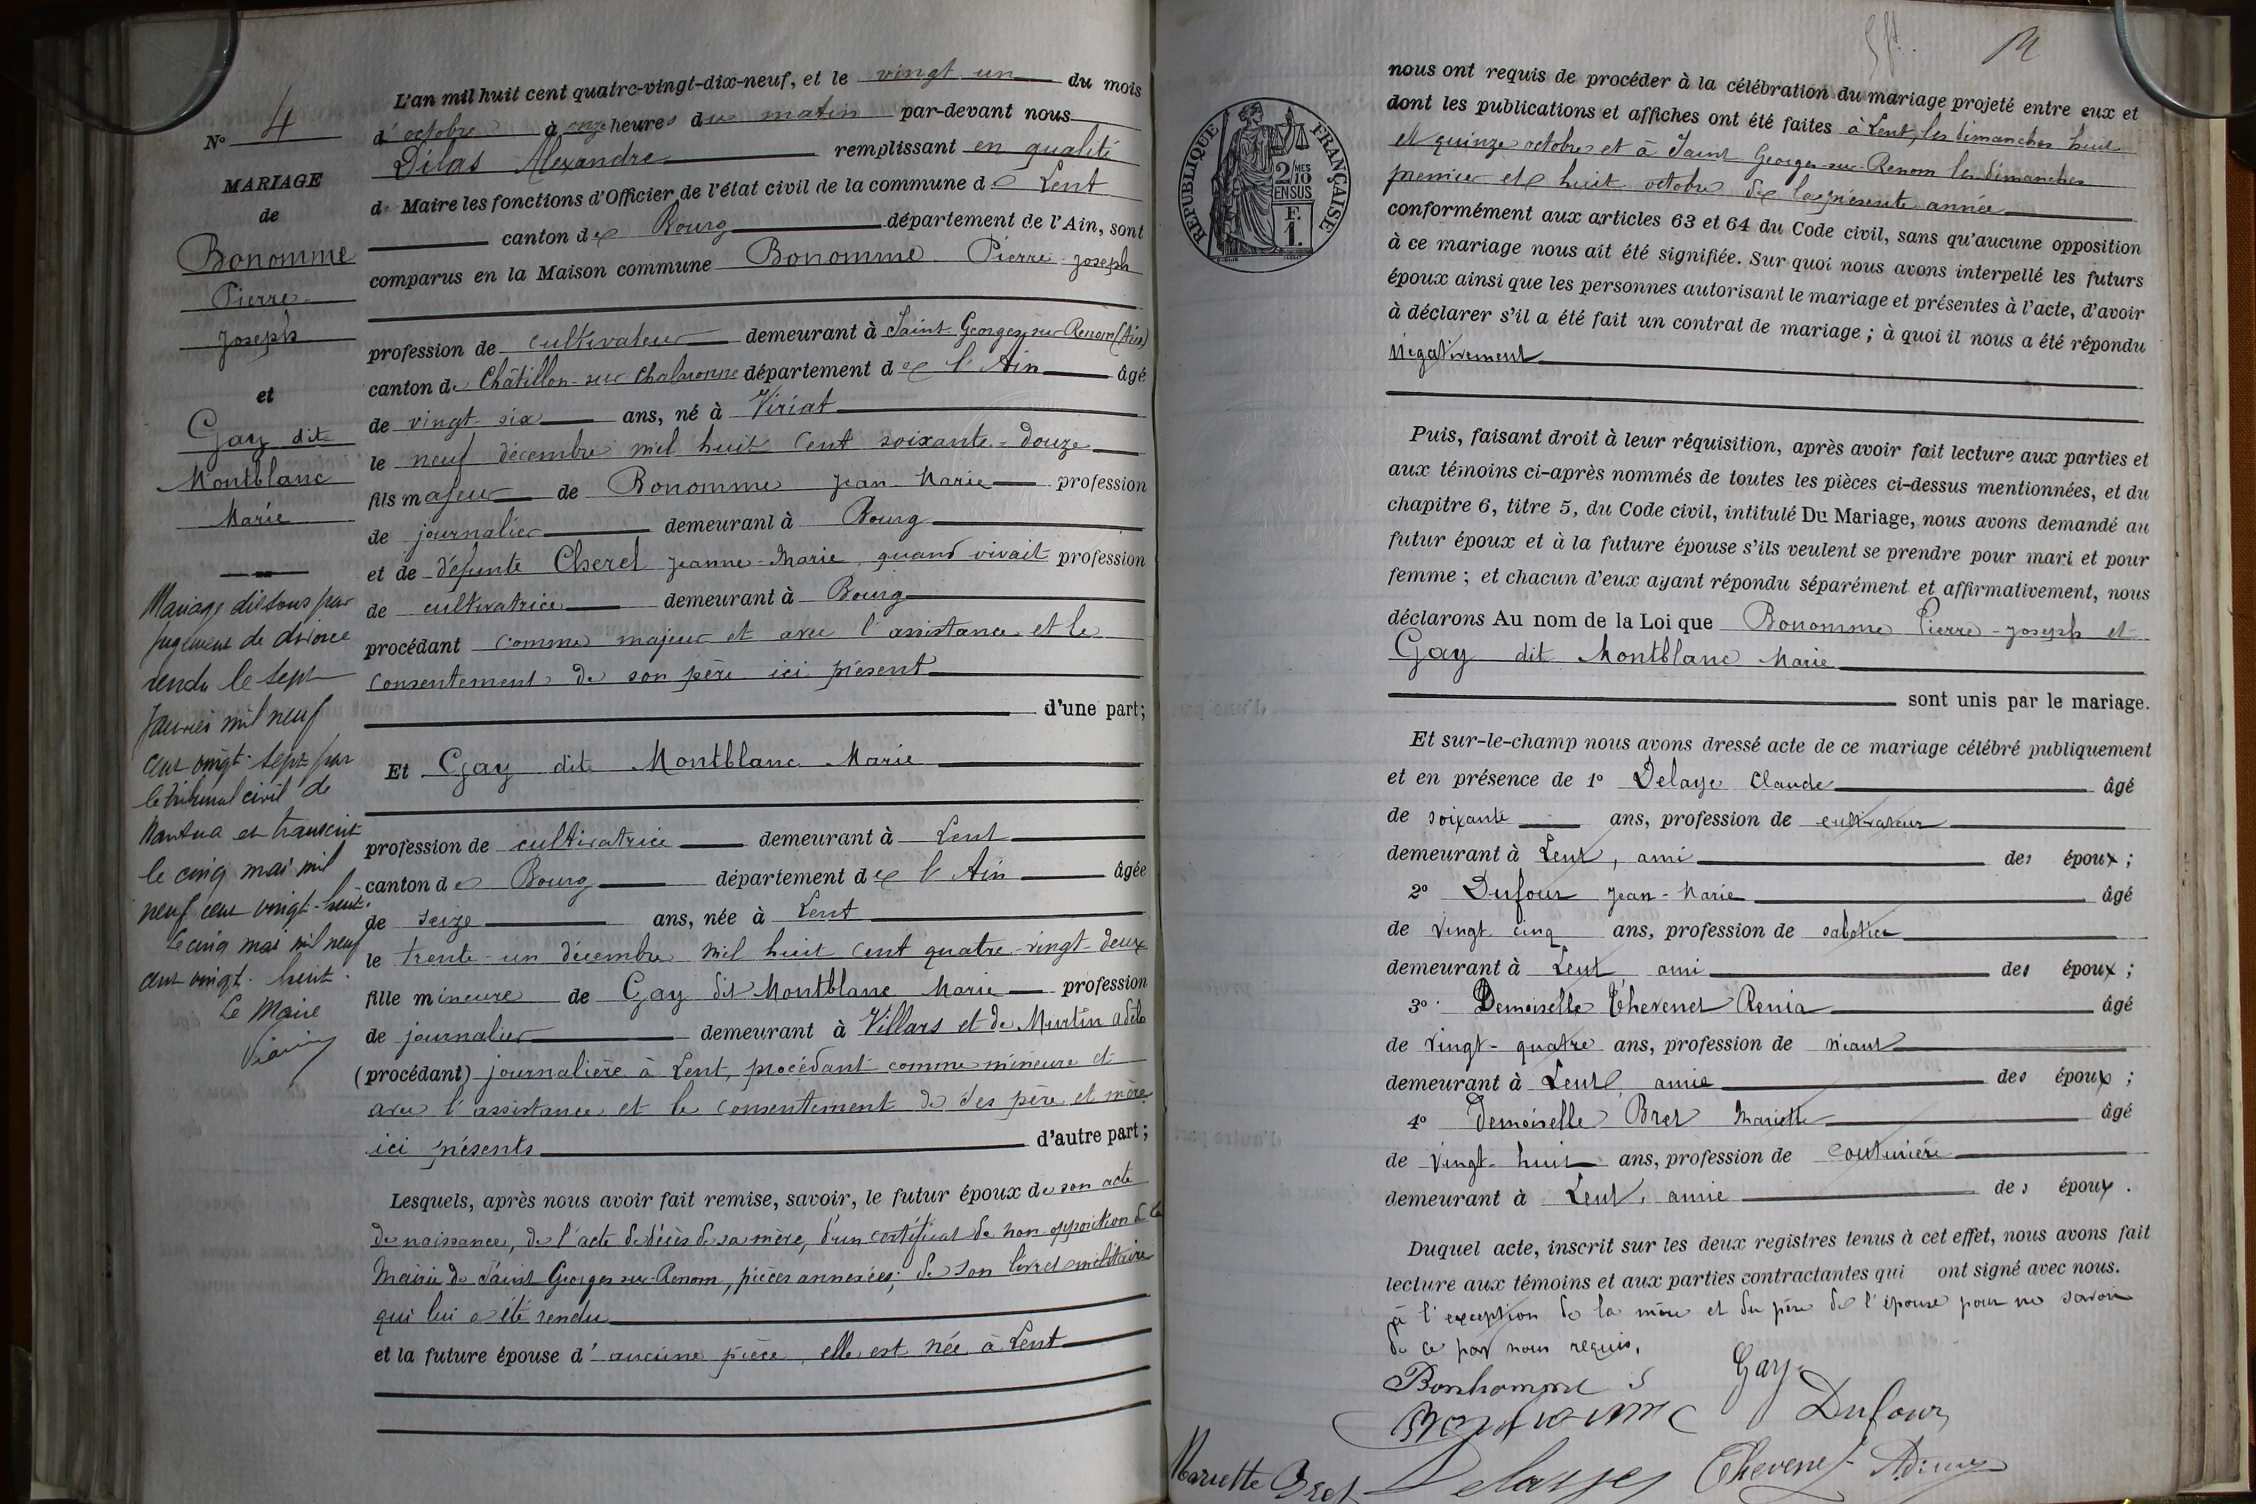 N° 4
MARIAGE
de
Bonomme
Pierre
Joseph
et
Gay dit
Montblanc
Marie
Mariage dissous par
jugement de divorce
rendu le sept
janvier mil neuf
cent vingt-sept par
le tribunal civil de
Nantua et transcrit
le cinq mai mil
neuf cent vingt-huit.
Le cinq mai mil neuf
cent vingt-huit.
Le Maire
L'an mil huit cent quatre-vingt-dix-neuf, et le vingt un du mois
d'octobre à onze heures du matin par-devant nous
Dilas Alexandre remplissant en qualité
de Maire les fonctions d'Officier de l'état civil de la commune de Lent
canton de Bourg département de l'Ain, sont
comparus en la Maison commune Bonomme Pierre-Joseph
profession de cultivateur demeurant à Saint Georges-sur-Renom (Ain)
canton de Châtillon-sur-Chalaronne département de l'Ain âgé
de vingt-six ans, né à Viriat
le neuf décembre mil huit cent soixante-douze
fils majeur de Bonomme Jean-Marie profession
de journalier demeurant à Bourg
et de défunte Cherel Jeanne-Marie quand vivait profession
de cultivatrice demeurant à Bourg
procédant comme majeur et avec l'assistance et le
consentement de son père ici présent
d'une part;
Et Gay dit Montblanc Marie
profession de cultivatrice demeurant à Lent
canton de Bourg département de l'Ain âgée
de seize ans, née à Lent
le trente-un décembre mil huit cent quatre-vingt-deux
fille mineure de Gay dit Montblanc Marie profession
de journalier demeurant à Villars et de Murtin Adèle
(procédant) journalière à Lent, procédant comme mineure et
avec l'assistance et le consentement de ses père et mère
ici présents d'autre part;
Lesquels, après nous avoir fait remise, savoir, le futur époux de son acte
de naissance, de l'acte de décès de sa mère, d'un certificat de non opposition de la
Mairie de Saint Georges-sur-Renom, pièces annexées; de son livret militaire
qui lui a été rendu
et la future épouse d'aucune pièce, elle est née à Lent
RÉPUBLIQUE FRANÇAISE
2/10
MES
EN SUS
F.
1.
nous ont requis de procéder à la célébration du mariage projeté entre eux et
dont les publications et affiches ont été faites à Lent, les dimanches huit
et quinze octobre et à Saint Georges-sur-Renom les dimanches
premier et huit octobre de la présente année
conformément aux articles 63 et 64 du Code civil, sans qu'aucune opposition
à ce mariage nous ait été signifiée. Sur quoi nous avons interpellé les futurs
époux ainsi que les personnes autorisant le mariage et présentes à l'acte, d'avoir
à déclarer s'il a été fait un contrat de mariage; à quoi il nous a été répondu
négativement
Puis, faisant droit à leur réquisition, après avoir fait lecture aux parties et
aux témoins ci-après nommés de toutes les pièces ci-dessus mentionnées, et du
chapitre 6, titre 5, du Code civil, intitulé Du Mariage, nous avons demandé au
futur époux et à la future épouse s'ils veulent se prendre pour mari et pour
femme; et chacun d'eux ayant répondu séparément et affirmativement, nous
déclarons Au nom de la Loi que Bonomme Pierre-Joseph et
Gay dit Montblanc Marie
sont unis par le mariage.
Et sur-le-champ nous avons dressé acte de ce mariage célébré publiquement
et en présence de 1° Delaye Claude âgé
de soixante ans, profession de cultivateur
demeurant à Lent, ami des époux;
2° Dufour Jean-Marie âgé
de vingt cinq ans, profession de sabotier
demeurant à Lent ami des époux;
3° Demoiselle Thevenet Renia âgé
de vingt-quatre ans, profession de néant
demeurant à Lent, amie des époux;
4° Demoiselle Bret Mariette âgé
de vingt-huit ans, profession de couturière
demeurant à Lent, amie des époux.
Duquel acte, inscrit sur les deux registres tenus à cet effet, nous avons fait
lecture aux témoins et aux parties contractantes qui ont signé avec nous.
à l'exception de la mère et du père de l'épouse pour ne savoir
de ce par nous requis.
Bonhomme J Gay
Dufour
Mariette Bret Delaye Thevenet